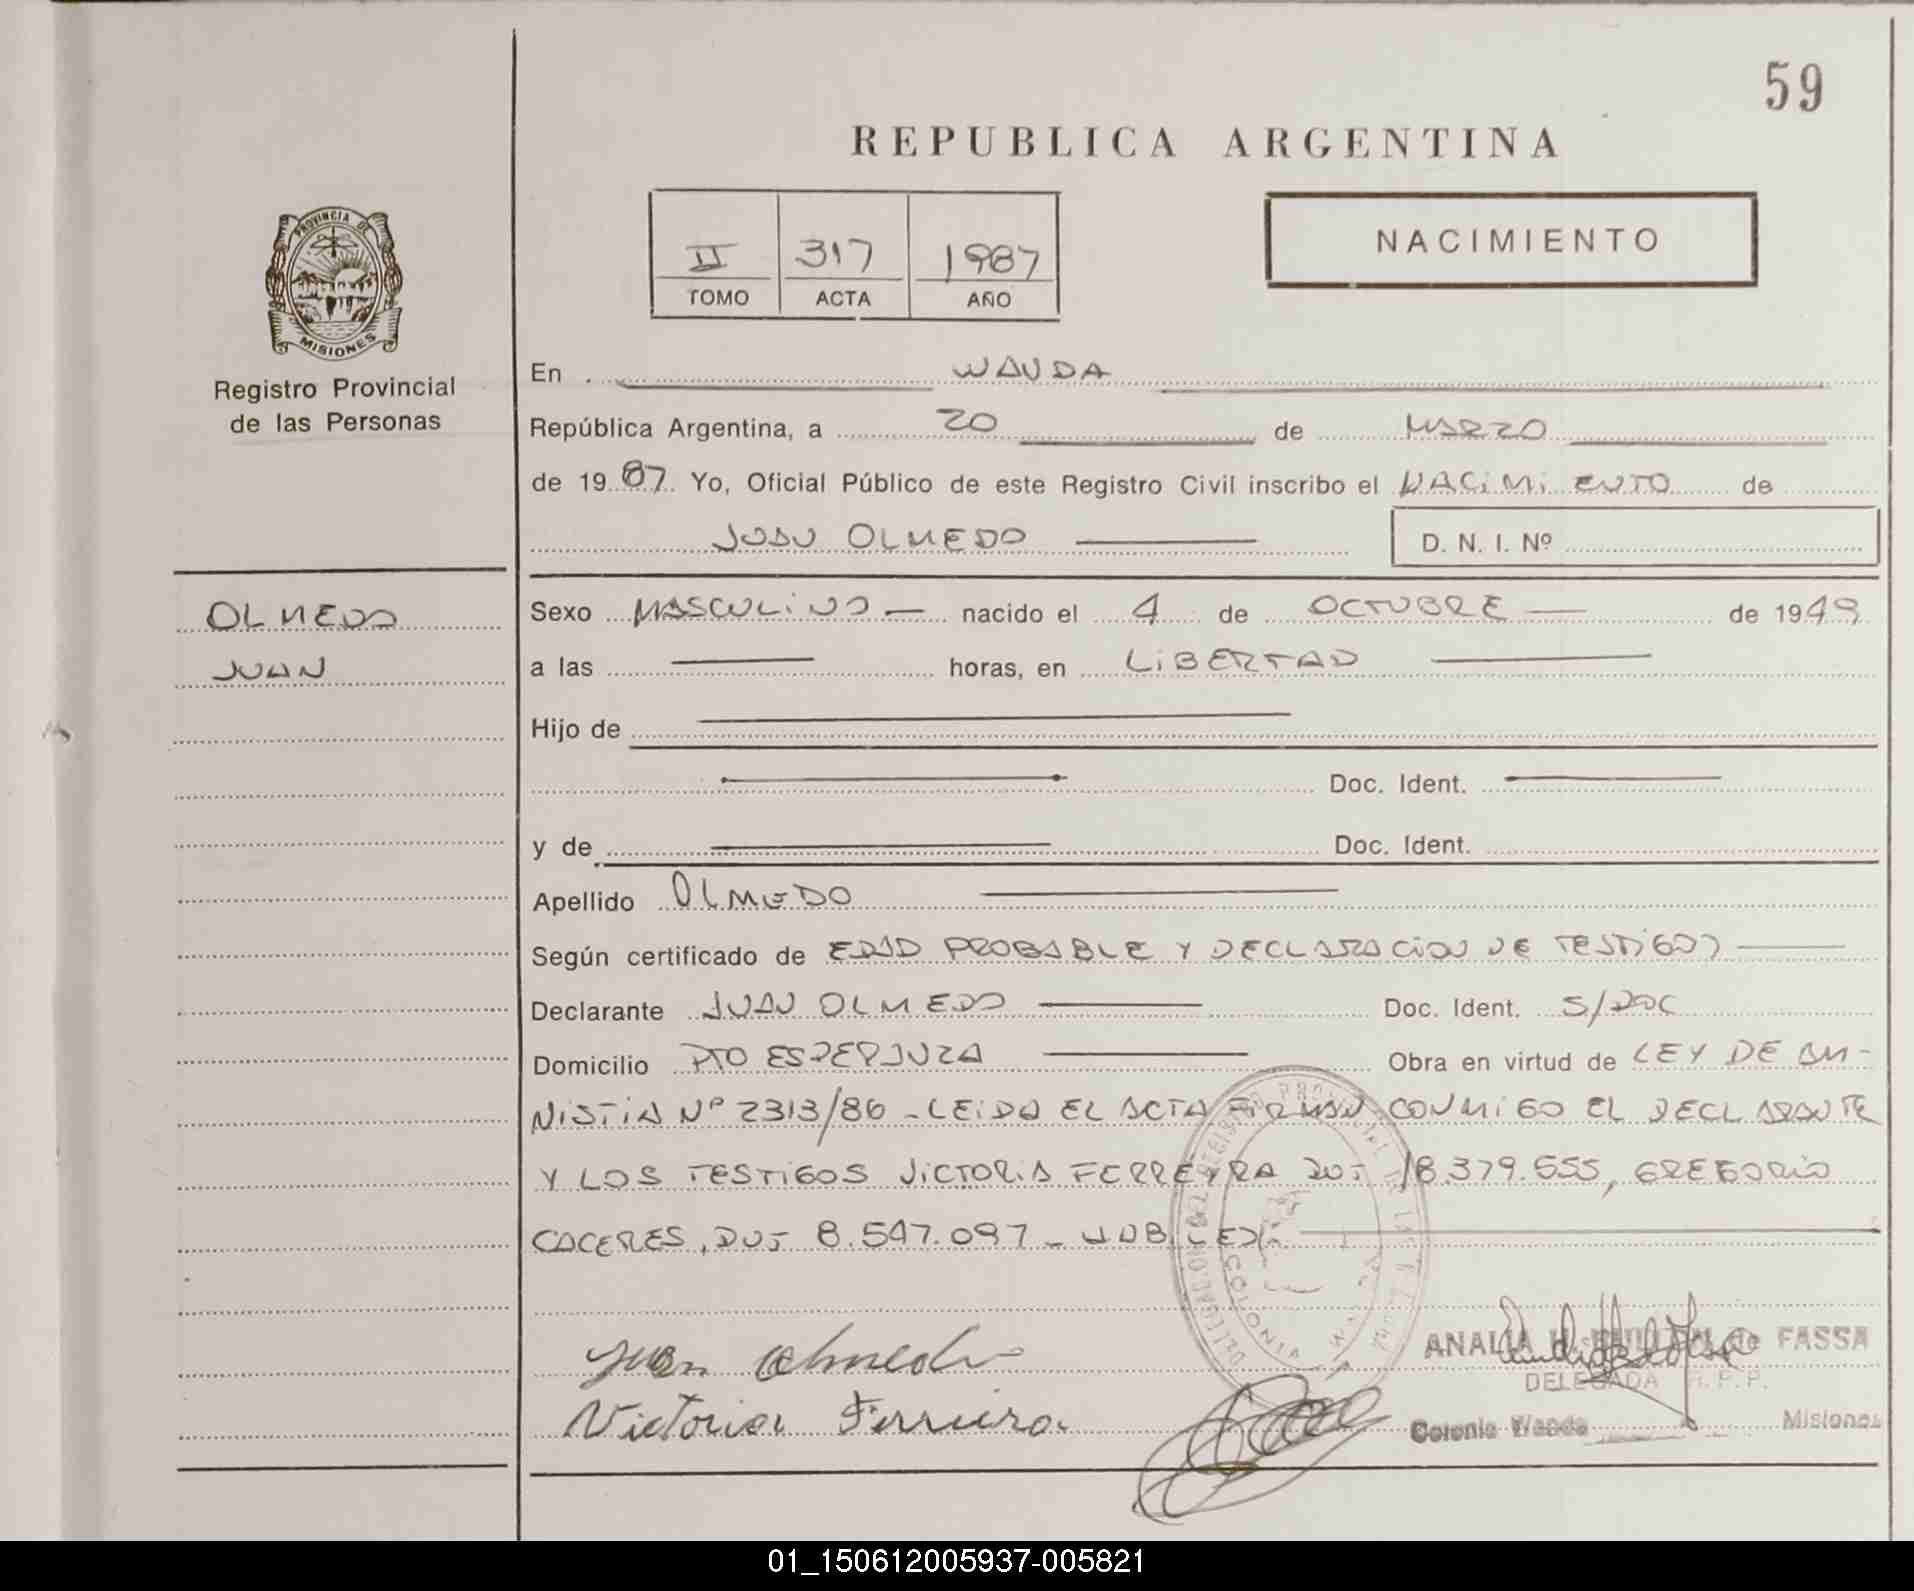 59
REPUBLICA ARGENTINA
II 317 1987
TOMO ACTA AÑO
NACIMIENTO
PROVINCIA DE
MISIONES
Registro Provincial
de las Personas
OLMEDO
JUAN
En WANDA
República Argentina, a 20 de MARZO
de 1987. Yo, Oficial Público de este Registro Civil inscribo el NACIMIENTO de
JUAN OLMEDO D. N. I. Nº
Sexo MASCULINO nacido el 4 de OCTUBRE de 1949
a las horas, en LIBERTAD
Hijo de
Doc. Ident.
y de Doc. Ident.
Apellido OLMEDO
Según certificado de EDAD PROBABLE Y DECLARACION DE TESTIGOS
Declarante JUAN OLMEDO Doc. Ident. S/DOC
Domicilio PTO ESPERANZA Obra en virtud de LEY DE AM-
NISTIA Nº 2313/86 - LEIDA EL ACTA FIRMAN CONMIGO EL DECLARANTE
Y LOS TESTIGOS VICTORIA FERREYRA DNI 18.379.555, GREGORIO
CACERES, DNI 8.547.097
Juan Olmedo
Victoria Ferreira
ANALIA de FASSA
DELEGADA R.P.P.
Colonia Wanda Misiones
01_150612005937-005821